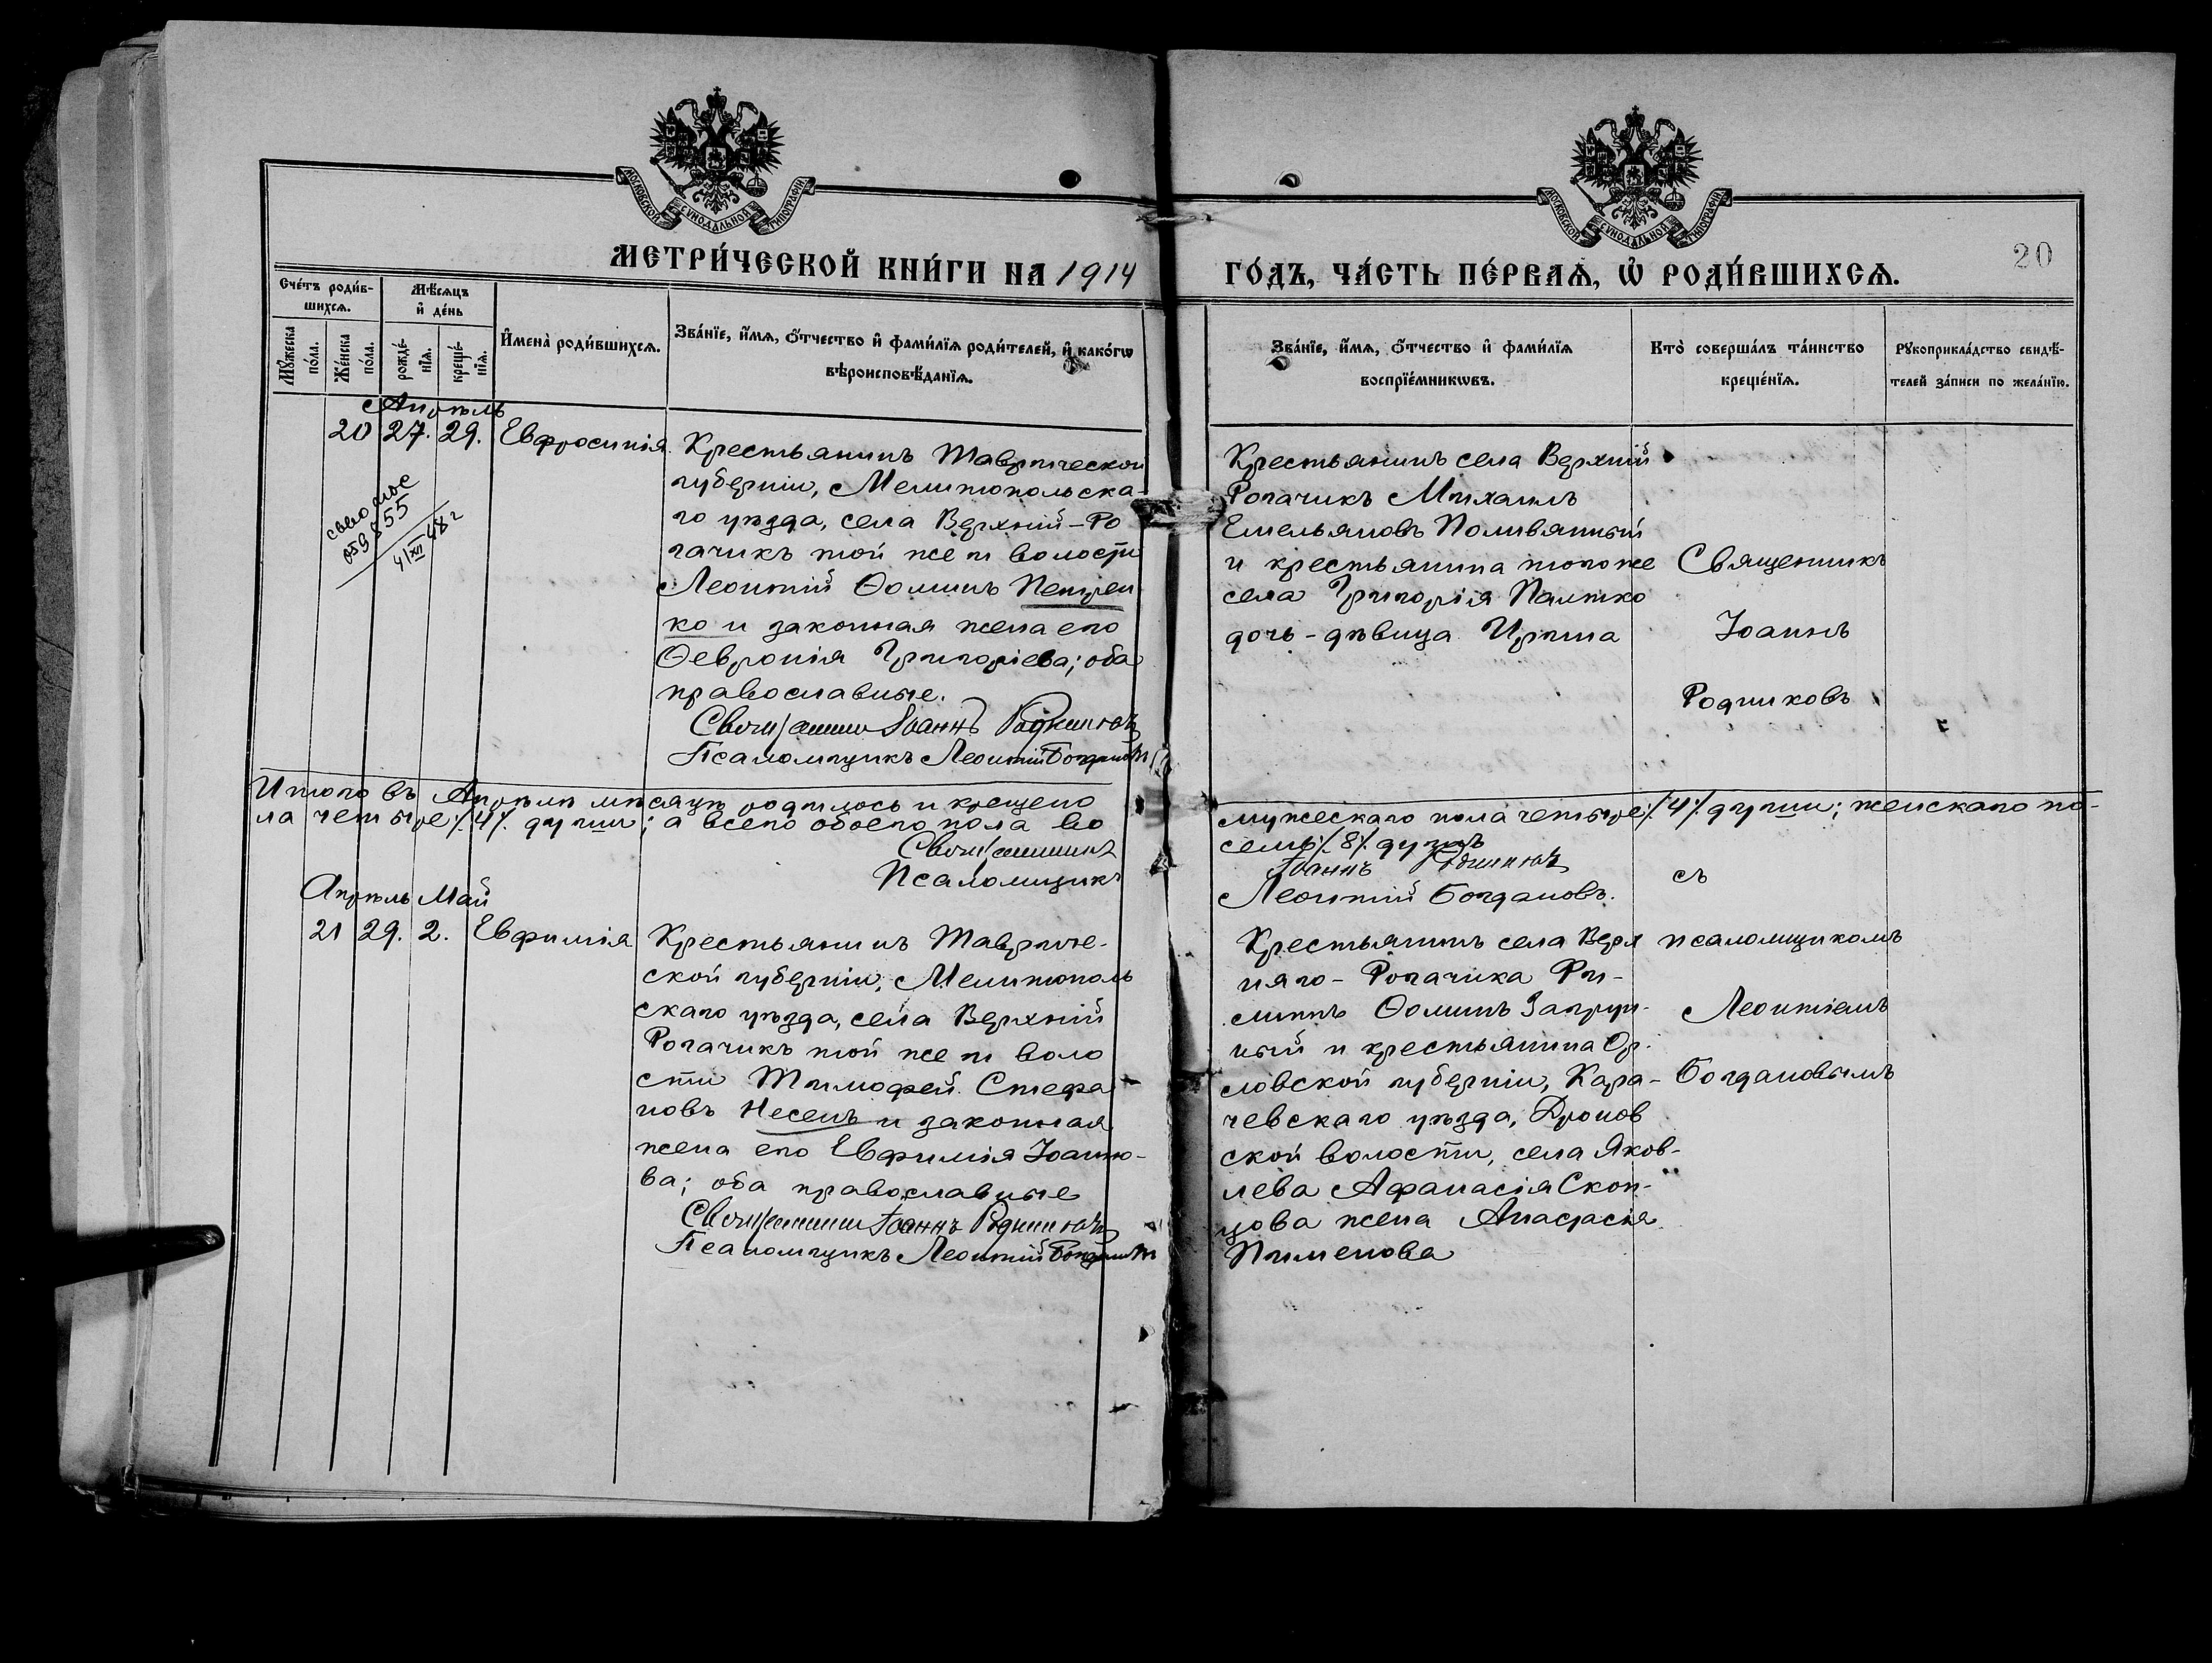 МОСКОВСКОЙ СѴНОДАЛЬНОЙ ТИПОГРАФІИ
МОСКОВСКОЙ СѴНОДАЛЬНОЙ ТИПОГРАФІИ
20
МЕТРИ́ЧЕСКОЙ КНИ́ГИ НА 1914 ГО́ДЪ, ЧА́СТЬ ПЕ́РВАѦ, Ѽ РОДИ́ВШИХСѦ.
Сче́тъ роди́в-
шихсѧ.
Мѣ́сѧцъ
и҆ де́нь
Мꙋ́жеска
по́ла.
Же́нска
по́ла.
рожде́-
нїѧ.
креще́-
нїѧ.
И҆мена̀ роди́вшихсѧ.
Зва́нїе, и҆́мѧ, ѻ҆́тчество и҆ фами́лїѧ роди́телей, и҆ како́гѡ
вѣроисповѣ́данїѧ.
Зва́нїе, и҆́мѧ, ѻ҆́тчество и҆ фами́лїѧ
воспрїе́мникѡвъ.
Кто̀ соверша́лъ та́инство
креще́нїѧ.
Рꙋкоприкла́дство свидѣ́-
телей за́писи по жела́нїю.
Апрѣль
20 27. 29. Евфросинія
55
4/XII 48 г
Крестьянинъ Таврической
губерніи, Мелитопольска-
го уѣзда, села Верхній-Ро
гачикъ той же и волости
Леонтій Ѳоминъ Петрен
ко и законная жена его
Ѳевронія Григоріева; оба
православные.
Священникъ Іоаннъ Родниковъ
Псаломщикъ Леонтій Богдановъ
Крестьянинъ села Верхній
Рогачикъ Михаилъ
Емельяновъ Поливянный
и крестьянина того же
села Григорія Палшко
дочь-дѣвица Ирина
Священникъ
Іоаннъ
Родниковъ
Итого въ Апрѣлѣ мѣсяцѣ родилось и крещено мужескаго пола четыре ⁒4⁒ души; женскаго по-
ла четыре ⁒4⁒ души; а всего обоего пола во семь ⁒8⁒ душъ
Священникъ Іоаннъ Родниковъ
Псаломщикъ Леонтій Богдановъ.
Апрѣль Май
21 29. 2. Евфимія
Крестьянинъ Тавриче-
ской губерніи, Мелитополь
скаго уѣзда, села Верхній
Рогачикъ той же и воло
сти Тимофей Стефа
новъ Несенъ и законная
жена его Евфимія Іоанно-
ва; оба православные
Священникъ Іоаннъ Родниковъ
Псаломщикъ Леонтій Богдановъ
Крестьянинъ села Верх
няго-Рогачика Фи-
липпъ Ѳоминъ Запруд-
ный и крестьянина Ор-
ловской губерніи, Кара-
чевскаго уѣзда, Дронов
ской волости, села Яков-
лева Афанасія Скоп-
цова жена Анастасія
Пименова
съ
псаломщикомъ
Леонтіемъ
Богдановымъ